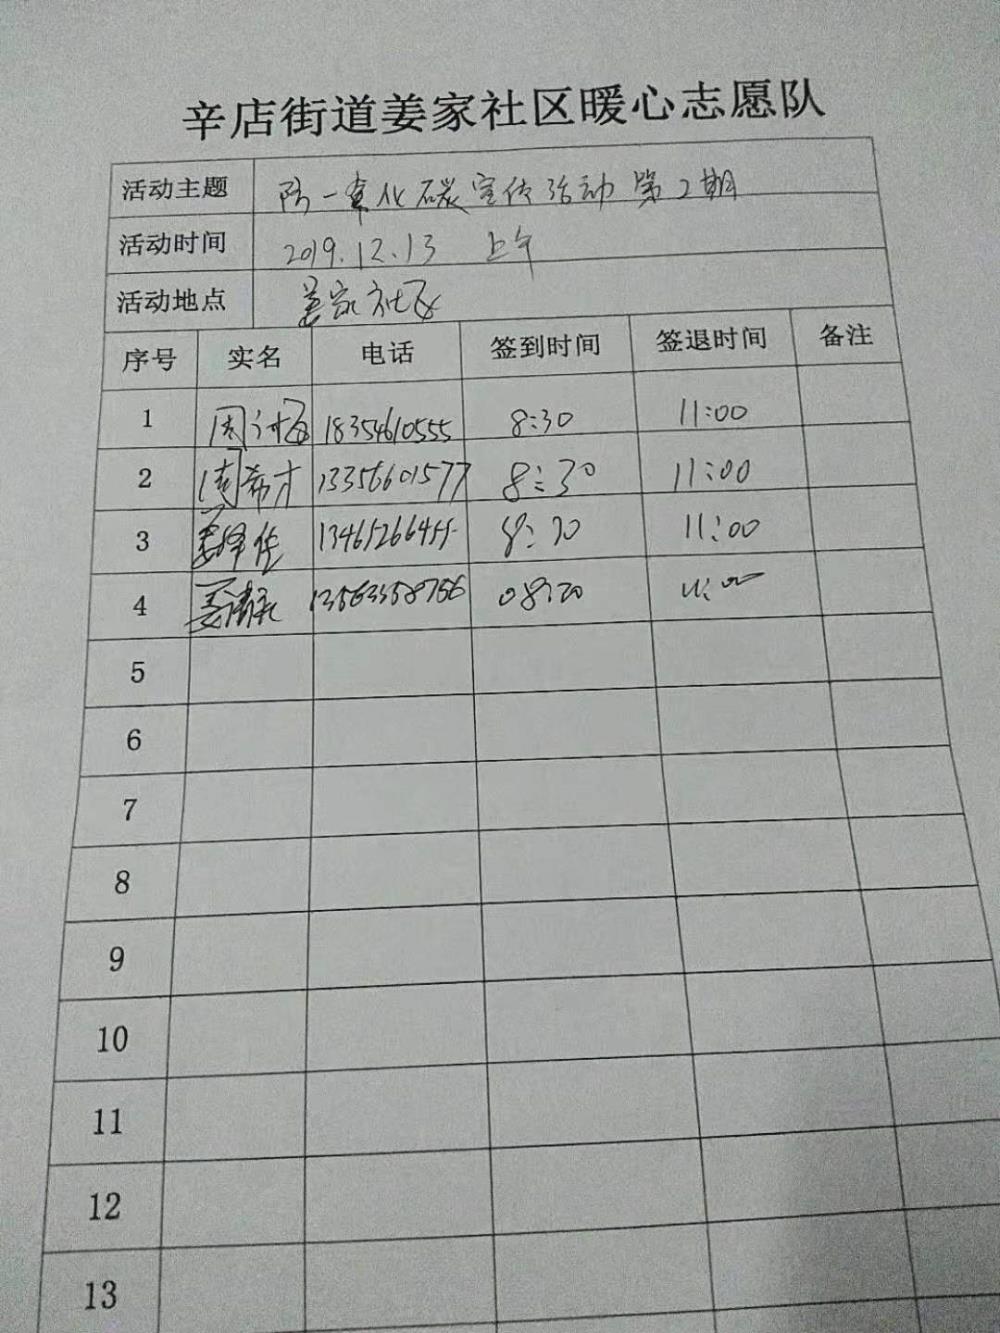 辛店街道姜家社区暖心志愿队
活动主题 防一氧化碳宣传活动第2期
活动时间 2019.12.13 上午
活动地点 姜家社区
序号 实名 电话 签到时间 签退时间 备注
1 周 18354610555 8:30 11:00
2 周希才 13356601577 8:30 11:00
3 姜 8:30 11:00
4 姜 13563358756 08:20 11:00
5
6
7
8
9
10
11
12
13